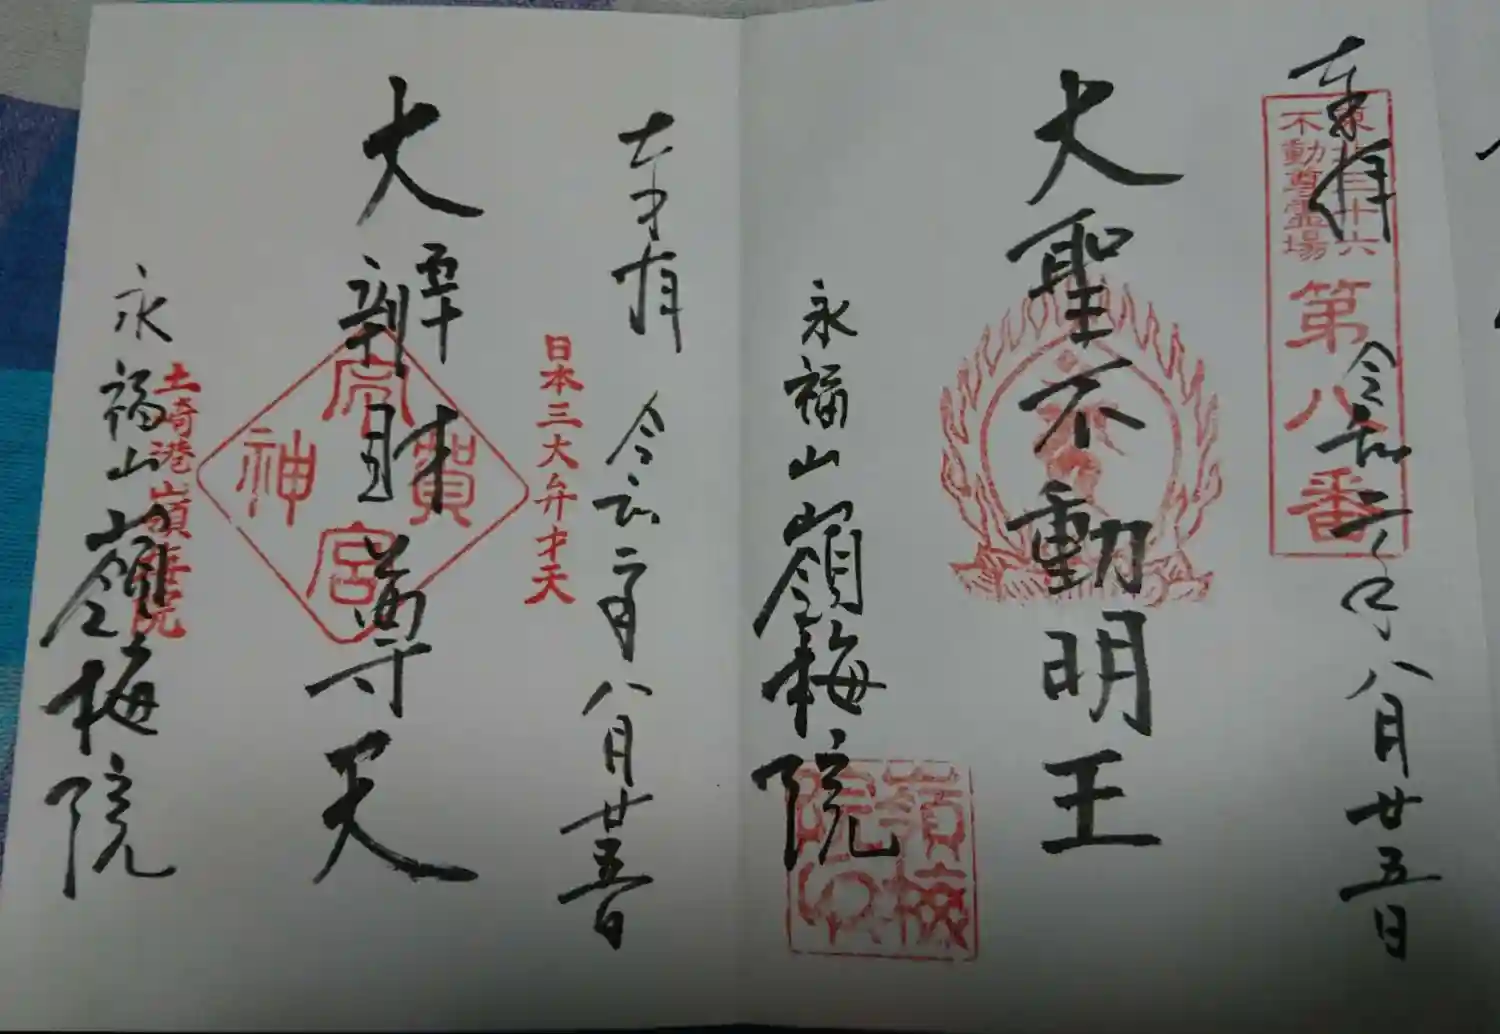 奉拝
東北三十六
不動尊霊場
第八番
令和二年八月廿五日
大聖不動明王
永福山嶺梅院
嶺梅
院印
奉拝
令和二年八月廿五日
日本三大弁才天
大辨財尊天
賀
宮
神
永福山嶺梅院
土崎港嶺梅院